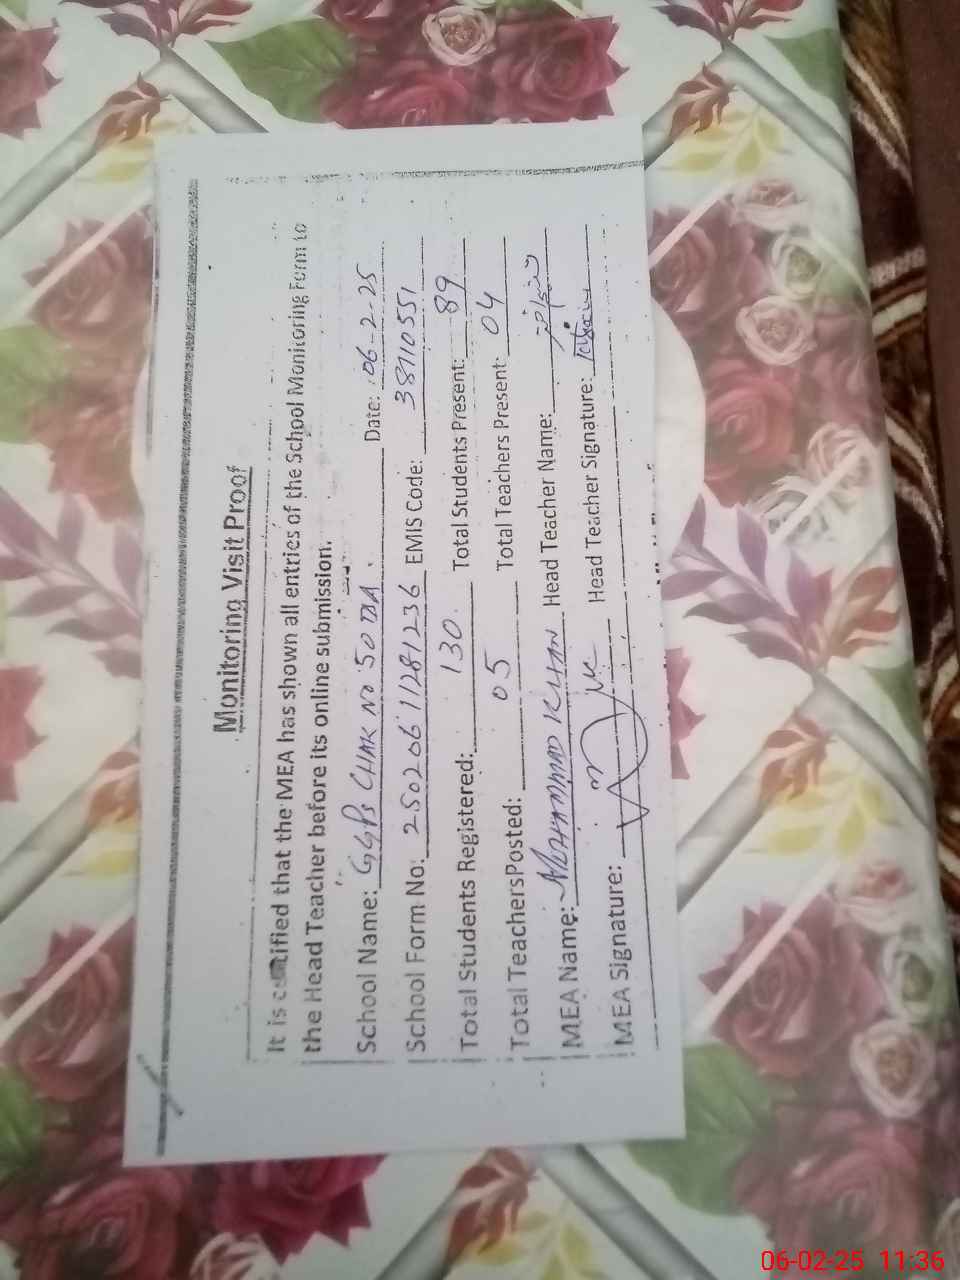 Monitoring Visit Proof
It is certified that the MEA has shown all entries of the School Monitoring Form to
the Head Teacher before its online submission.
School Name: GGPS CHAK No 50 TDA. Date: 06-2-25
School Form No: 2502061128 1236 EMIS Code: 38710551
Total Students Registered: 130 Total Students Present: 89
Total Teachers Posted: 05 Total Teachers Present: 04
MEA Name: MUHAMMAD KHAN Head Teacher Name:
MEA Signature: Head Teacher Signature:
06-02-25 11:36